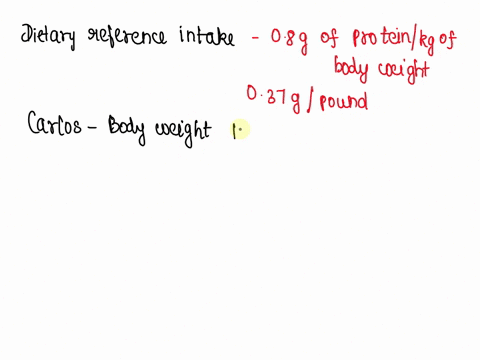 Dietary reference intake - 0.8g of protein/kg of
body weight
0.37g/pound
Carlos - Body weight